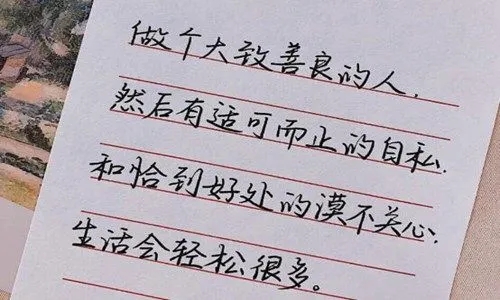 做个大致善良的人,
然后有适可而止的自私,
和恰到好处的漠不关心,
生活会轻松很多。